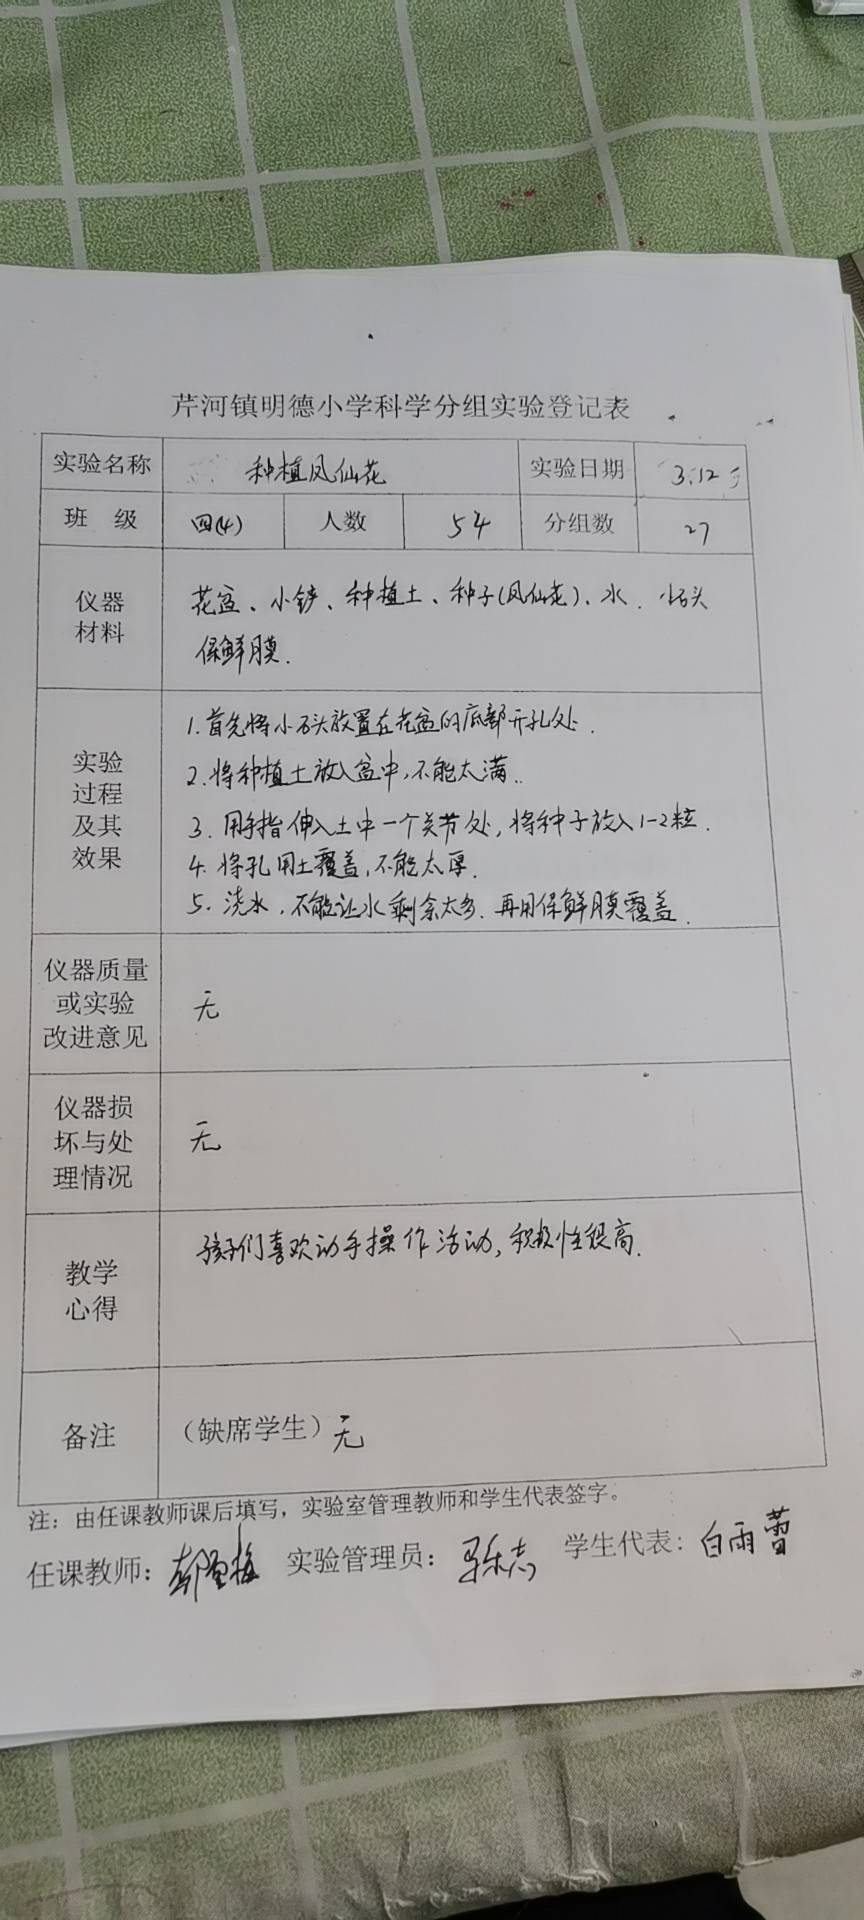 芹河镇明德小学科学分组实验登记表
实验名称 种植凤仙花 实验日期 3.12
班 级 四(4) 人数 54 分组数 27
仪器
材料
花盆、小铲、种植土、种子(凤仙花)、水．小石头
保鲜膜．
实验
过程
及其
效果
1.首先将小石头放置在花盆的底部开孔处．
2.将种植土放入盆中,不能太满．
3．用手指伸入土中一个关节处,将种子放入1-2粒．
4.将孔用土覆盖,不能太厚．
5.浇水,不能让水剩余太多．再用保鲜膜覆盖．
仪器质量
或实验
改进意见
无
仪器损
坏与处
理情况
无
教学
心得
孩子们喜欢动手操作活动,积极性很高．
备注 （缺席学生）无
注：由任课教师课后填写，实验室管理教师和学生代表签字。
任课教师： 实验管理员： 学生代表：白雨蕾